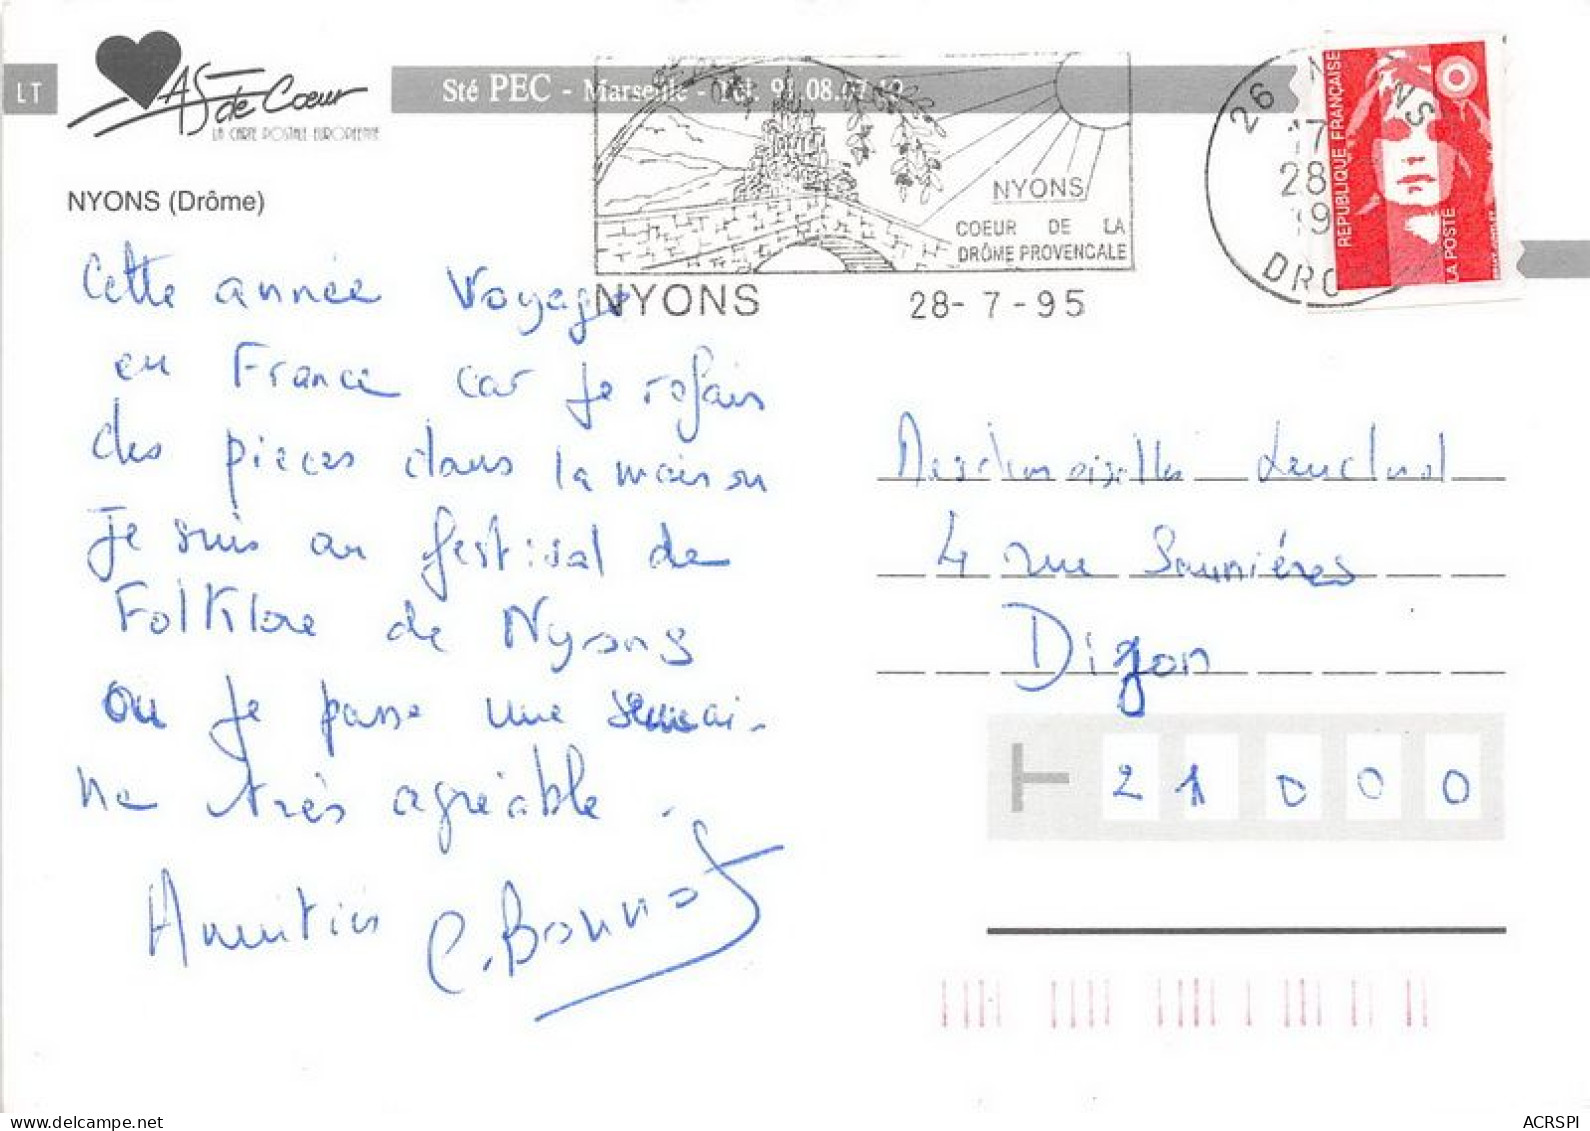 LT
AS de Coeur
LA CARTE POSTALE EUROPÉENNE
Sté PEC - Marseille - Tél. 91.08.
NYONS (Drôme)
NYONS
COEUR DE LA
DRÔME PROVENCALE
NYONS 28-7-95
26 NYONS
17
28
19
DRO
REPUBLIQUE FRANÇAISE
LA POSTE
Cette année Voyage
en France car je refais
des pieces dans la maison
Je suis au festival de
Folklore de Nyons
ou je passe une semai-
ne très agréable.
Amitiés C. Bonnot
Mesdemoiselles
4 rue Saunières
Dijon
21000
ACRSPI